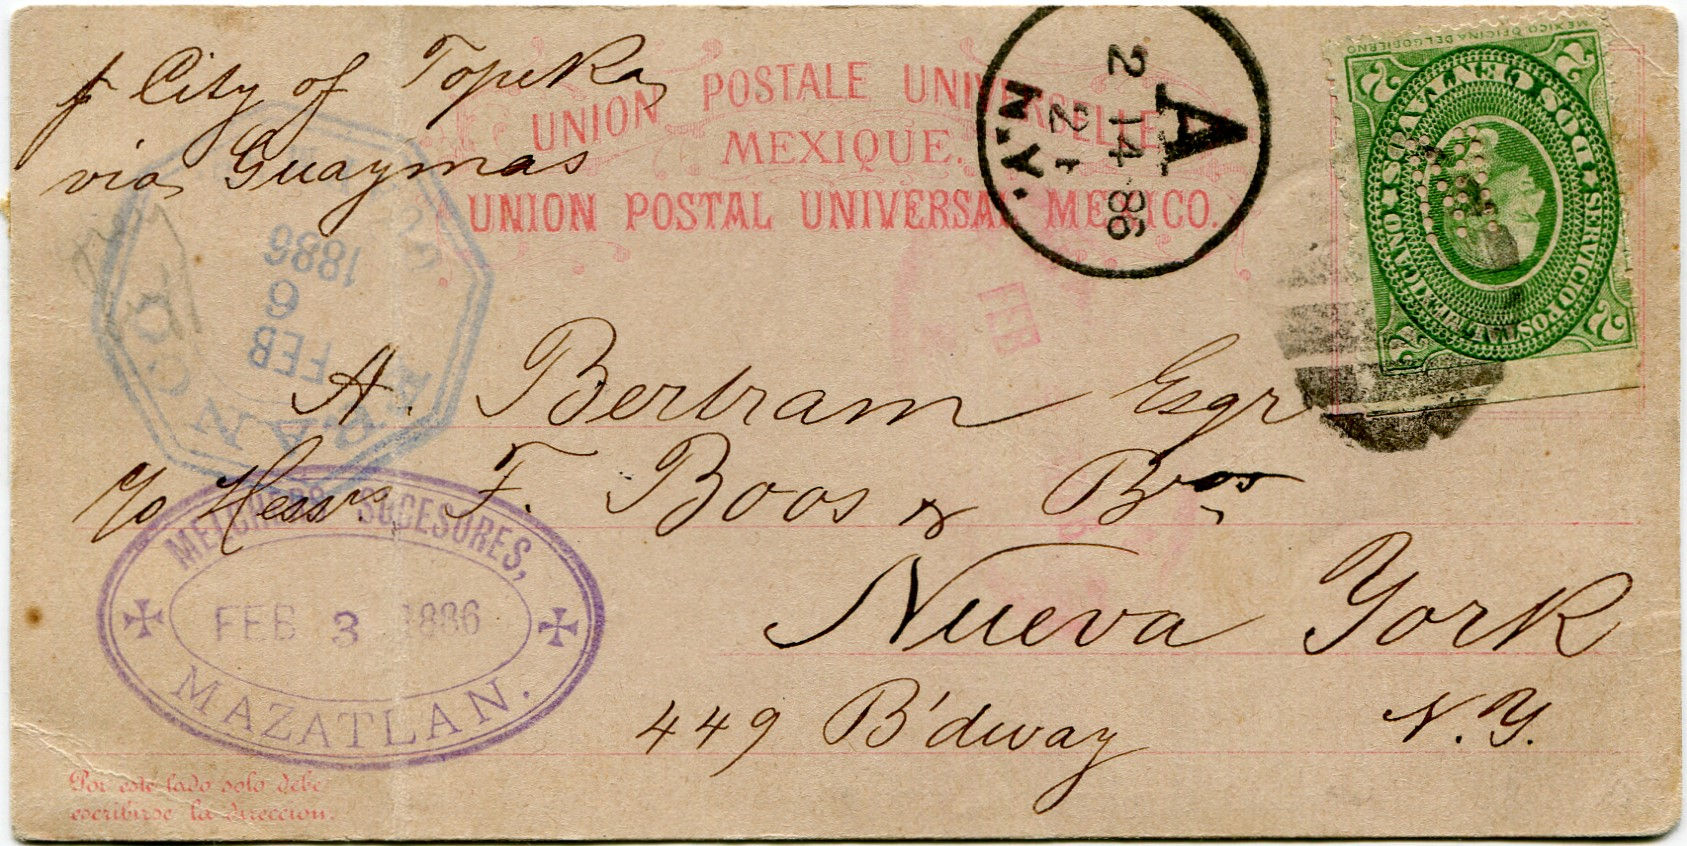 p City of Topeka
via Guaymas
UNION POSTALE UNIVERSELLE
MEXIQUE.
UNION POSTAL UNIVERSAL MEXICO.
A
2 14 86
2
N.Y.
MEXICO OFICINA DEL GOBIERNO
SERVICIO POSTAL MEXICANO
DOS CENTAVOS
2 2 2 2
FRANCO
FEB
6
1886
FEB
A. Bertram Esqr
c/o Mess. F. Boos & Bros
Nueva York
449 B'dway N.Y.
MELCHERS SUCESORES,
FEB 3 1886
MAZATLAN.
Por este lado solo debe
escribirse la direccion.